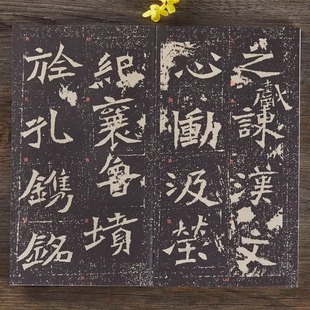 之諫漢文
心慟汲塋
紀襄魯墳
於孔鐫銘